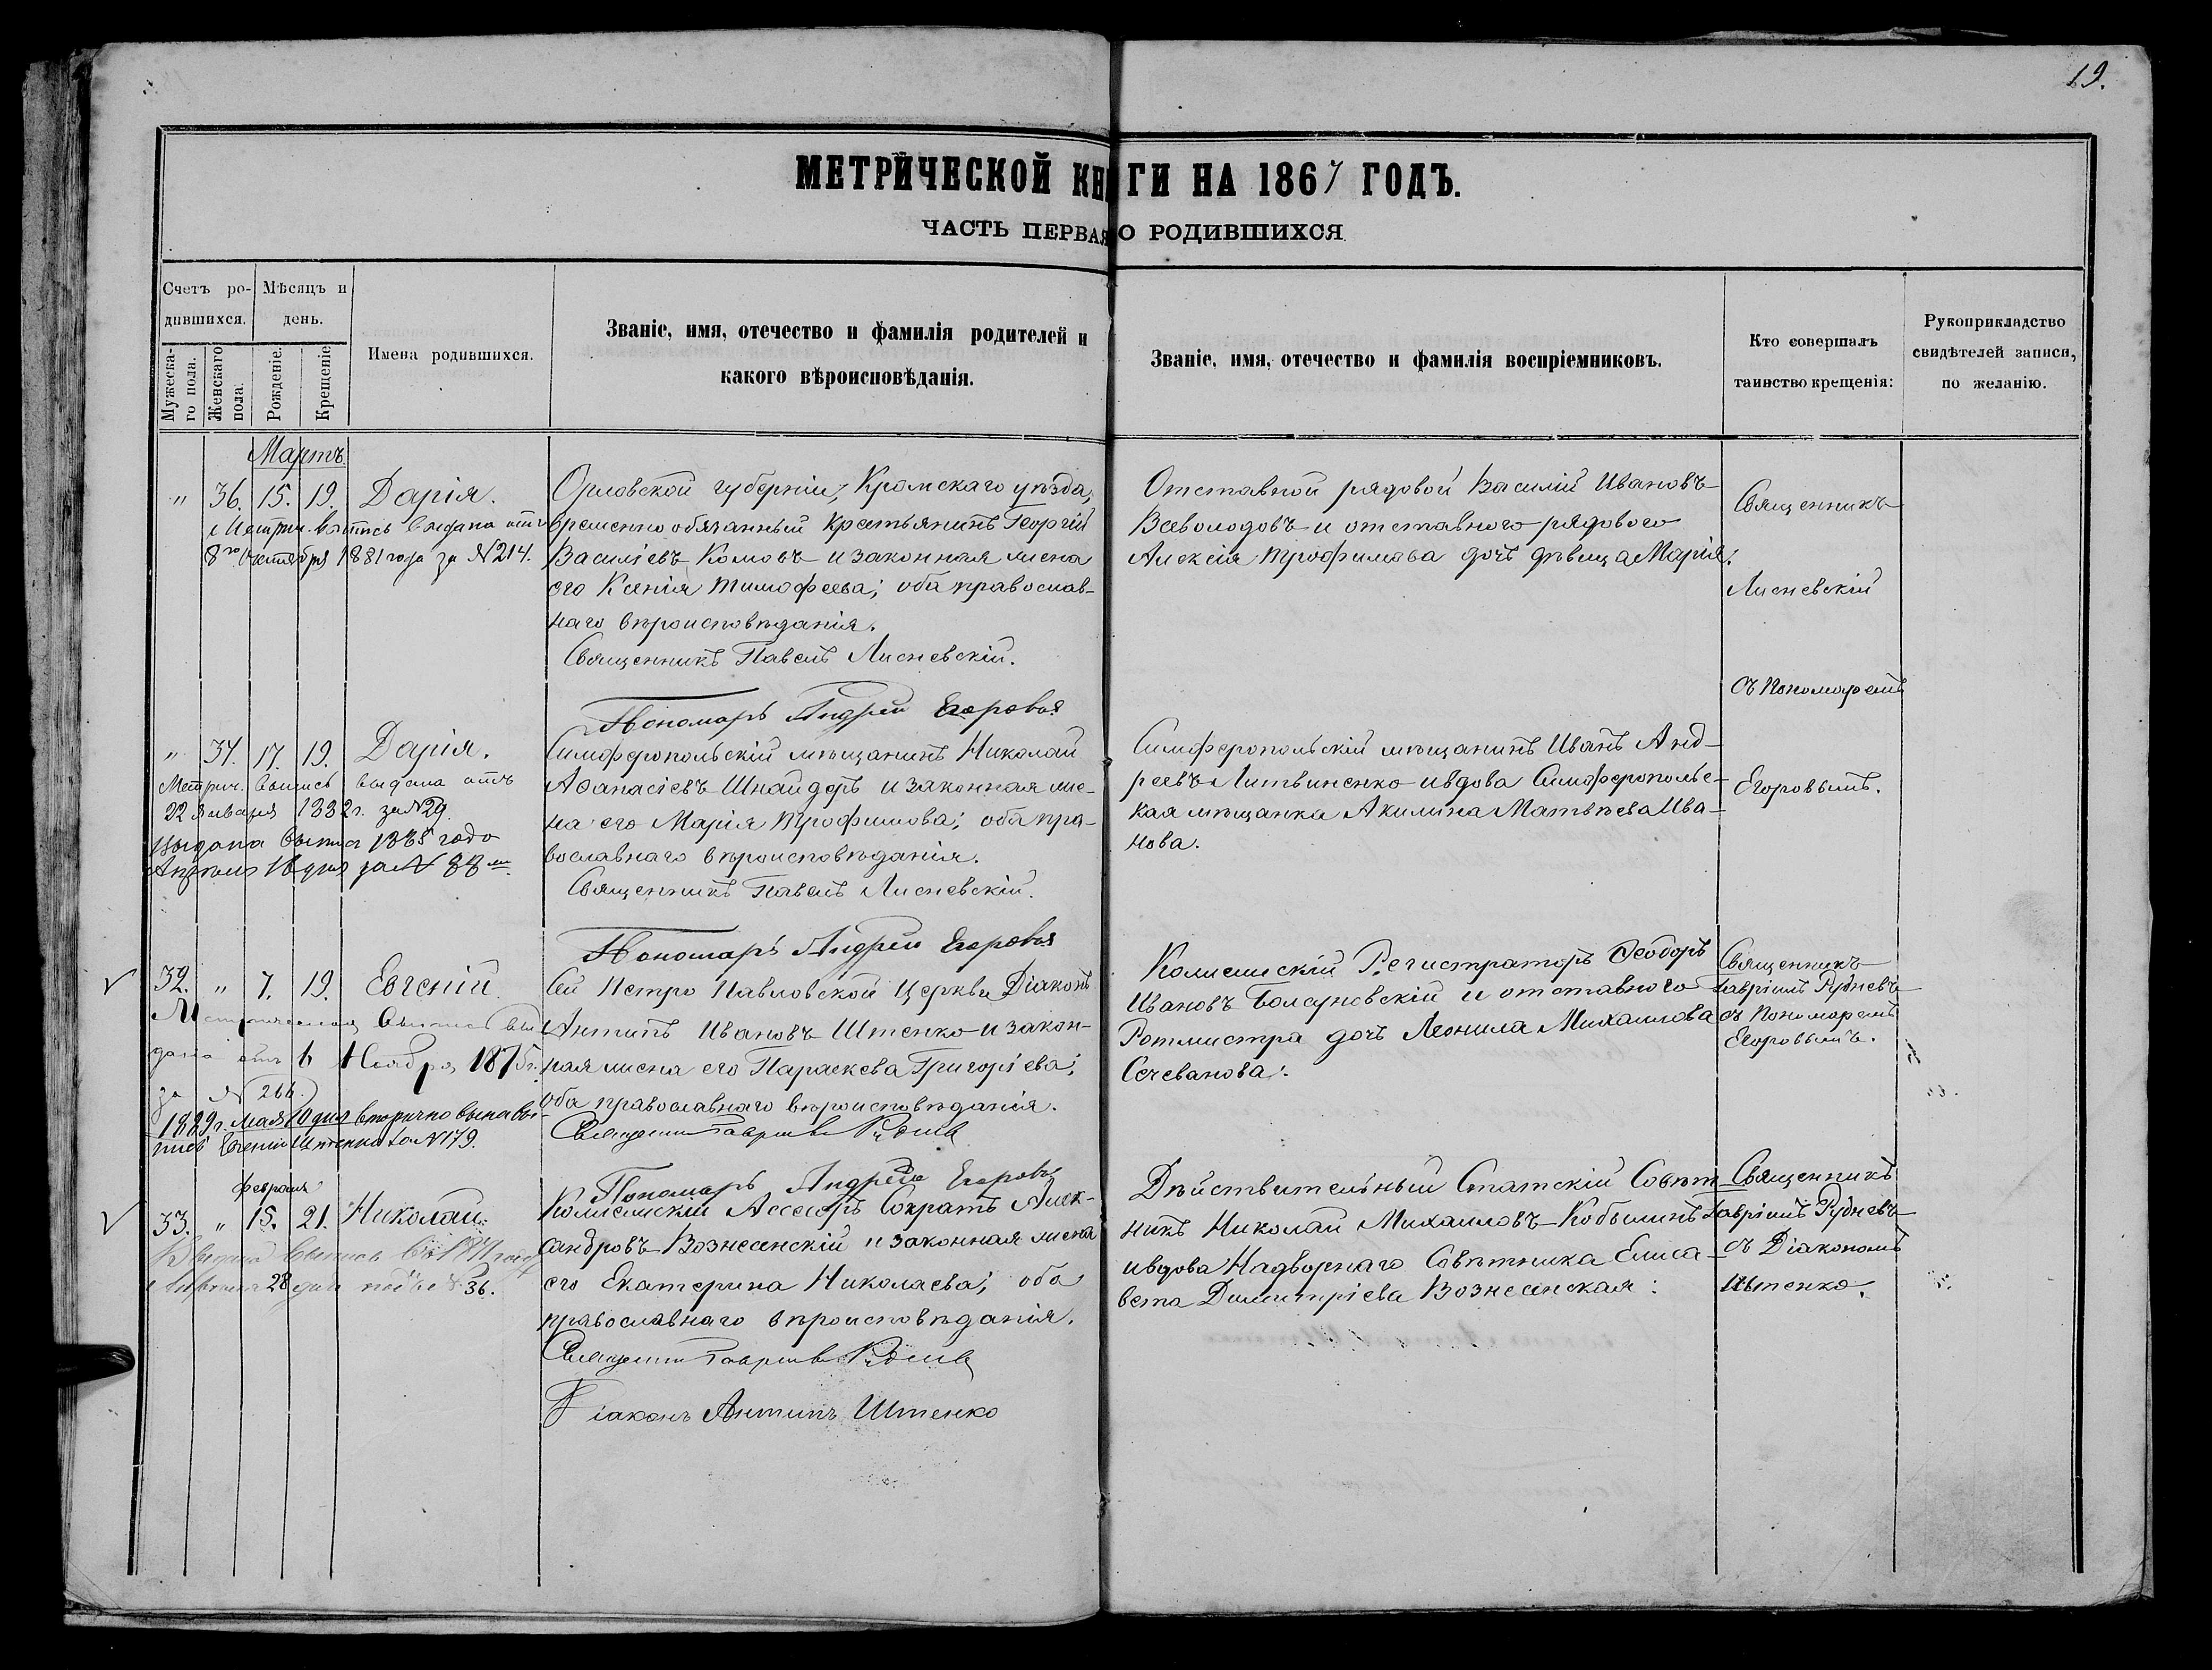 19.
МЕТРИЧЕСКОЙ КНИГИ НА 1867 ГОДЪ.
ЧАСТЬ ПЕРВАЯ О РОДИВШИХСЯ
Счетъ ро-
дившихся.
Мѣсяцъ и
день.
Мужеска-
го пола.
Женскаго
пола.
Рожденіе.
Крещеніе.
Имена родившихся.
Званіе, имя, отечество и фамилія родителей и
какого вѣроисповѣданія.
Званіе, имя, отечество и фамилія воспріемниковъ.
Кто совершалъ
таинство крещенія:
Рукоприкладство
свидѣтелей записи,
по желанію.
Мартъ
" 36. 15. 19. Дарія.
Метрич. выпись выдана отъ
8го Октября 1881 года за №214.
Орловской губерніи, Кромскаго уѣзда,
временно обязанный крестьянинъ Георгій
Василіевъ Комовъ и законная жена
его Ксенія Тимофеева; оба православ-
наго вѣроисповѣданія.
Священникъ Павелъ Лисневскій.
Пономарь Андрей Егоровъ
Отставной рядовой Василій Ивановъ
Всеволодовъ и отставного рядового
Алексія Трофимова дочь дѣвица Марія.
Священникъ
Лисневскій
съ Пономаремъ
Егоровымъ.
" 37. 17. 19. Дарія.
Метрич. выпись выдана отъ
22 Января 1882 г. за №29.
Выдана выпись 1885 года
Апрѣля 16 дня за № 88
Симферопольскій мѣщанинъ Николай
Аѳанасіевъ Шнайдеръ и законная же-
на его Марія Трофимова; оба пра-
вославнаго вѣроисповѣданія.
Священникъ Павелъ Лисневскій.
Пономарь Андрей Егоровъ
Симферопольскій мѣщанинъ Иванъ Анд-
реевъ Литвиненко и вдова Симферопольс-
кая мѣщанка Акилина Матвѣева Ива-
нова.
32. " 7. 19. Евгеній.
Метрическая выпись вы
дана отъ 6 Ноября 1875 г.
за № 266.
1889 г. Мая 10 дня вторично выдана вы-
пись Евгенію Штенко за №179.
Сей Петро Павловской Церкви Діаконъ
Антипъ Ивановъ Штенко и закон-
ная жена его Параскева Григоріева;
оба православнаго вѣроисповѣданія.
Священникъ Гавріилъ Рудневъ
Пономарь Андрей Егоровъ
Колежскій Регистраторъ Ѳеодоръ
Ивановъ Болсуновскій и отставного
Ротмистра дочь Леонила Михаилова
Сечеванова:
Священникъ
Гавріилъ Рудневъ
съ Пономаремъ
Егоровымъ.
Февраля
33. " 15. 21. Николай.
Выдана выпись
Апрѣля 28 дня подъ № 36.
Колежскій Асесоръ Сократъ Алек-
сандровъ Вознесенскій и законная жена
его Екатерина Николаева; оба
православнаго вѣроисповѣданія.
Священникъ Гавріилъ Рудневъ
Діаконъ Антипъ Штенко
Дѣйствительный Статскій Совѣт-
никъ Николай Михаиловъ Кобылинъ
и вдова Надворнаго Совѣтника Елиса-
вета Димитріева Вознесенская:
Священникъ
Гавріилъ Рудневъ
съ Діакономъ
Штенко.